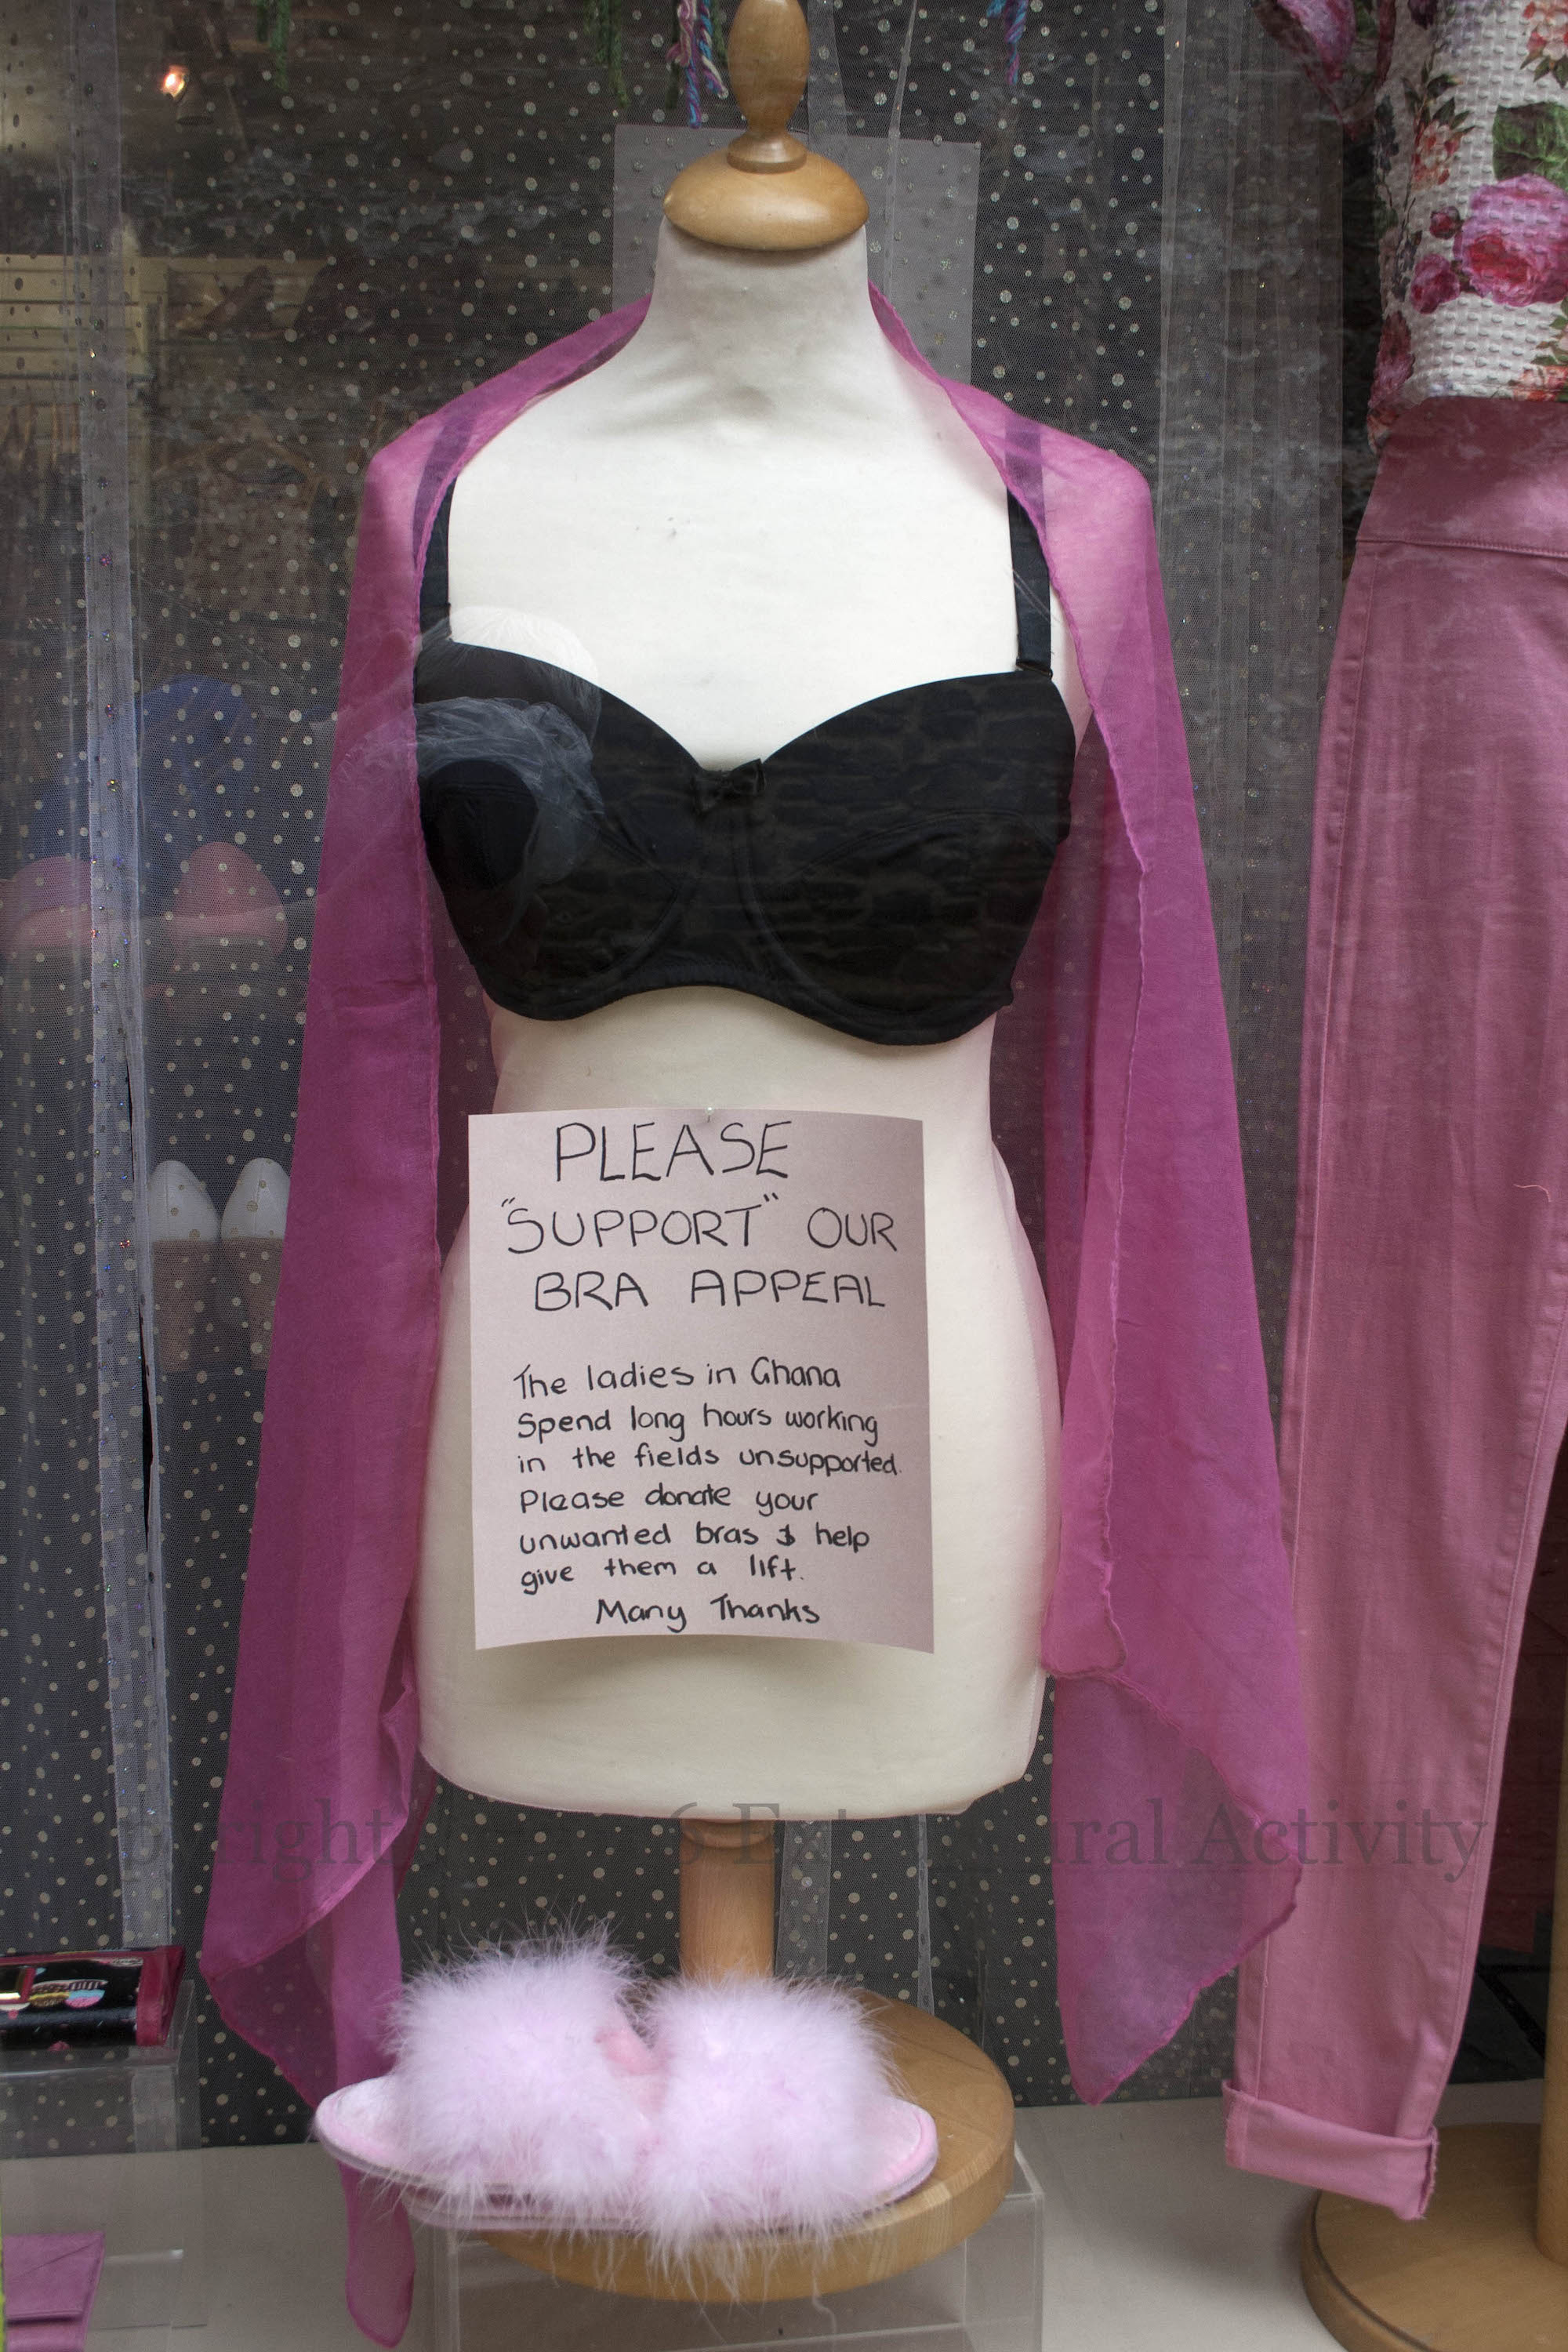 PLEASE
"SUPPORT" OUR
BRA APPEAL
The ladies in Ghana
Spend long hours working
in the fields unsupported.
Please donate your
unwanted bras & help
give them a lift.
Many Thanks
Activity